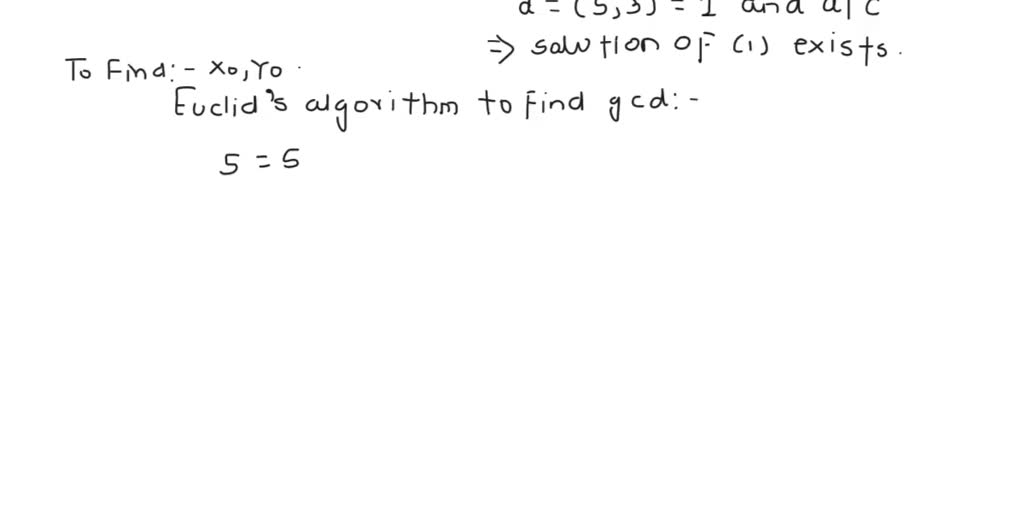 d = (5,3) = 1 and d | c
⇒ solution of (1) exists.
To Find:- x0, y0.
Euclid's algorithm to find gcd:-
5 = 5